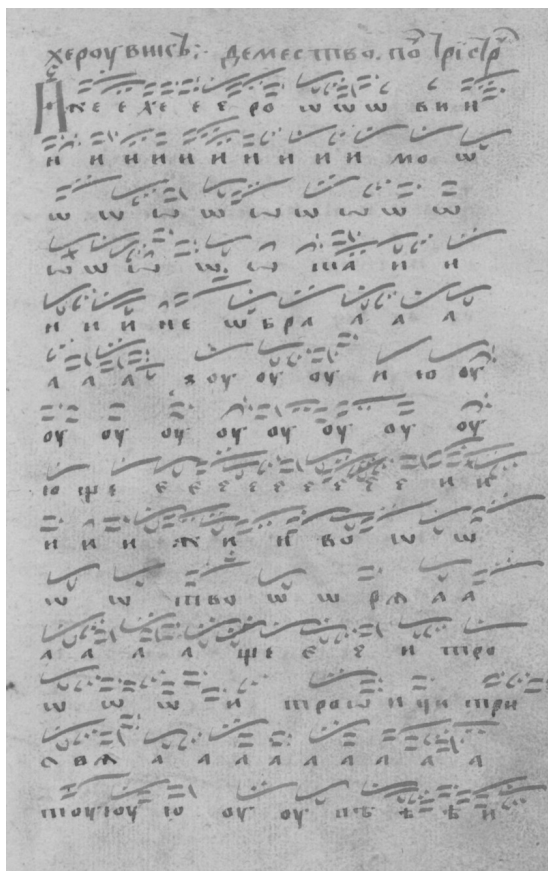 херꙋвикъ: демество. по трістрꙋ
иже е хе е е ро ѡ ѡ ѡ ви и
и и и и и и и и и и и мо ѡ
ѡ ѡ ѡ ѡ ѡ ѡ ѡ ѡ ѡ
ѡ ѡ ѡ ѡ ѡ ѡ та и и
и и и не ѡбра а а а а
а а а зоу оу оу и ю оу
оу оу оу оу оу оу оу оу
юще е е е е е е е е и и
и и и жи и во ѡ ѡ
ѡ ѡ тво ѡ ѡ рѧ а а
а а а а ще е е и тро
ѡ ѡ ѡ и трои и чи три
свѧ а а а а а а а а
тоую ую ю оу оу пѣ ѣ ѣ и